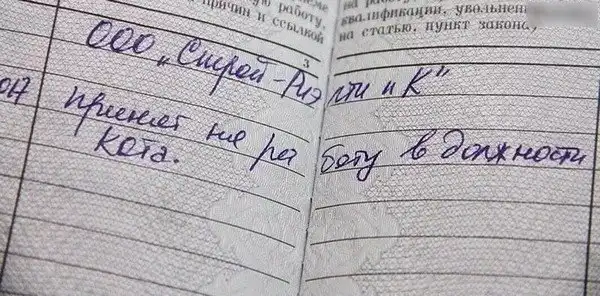 работу,
причин и ссылкой
квалификации, увольнен
на статью, пункт закона,
3
ООО „Строй-Риэлти и К"
принят на работу в должности
кота.